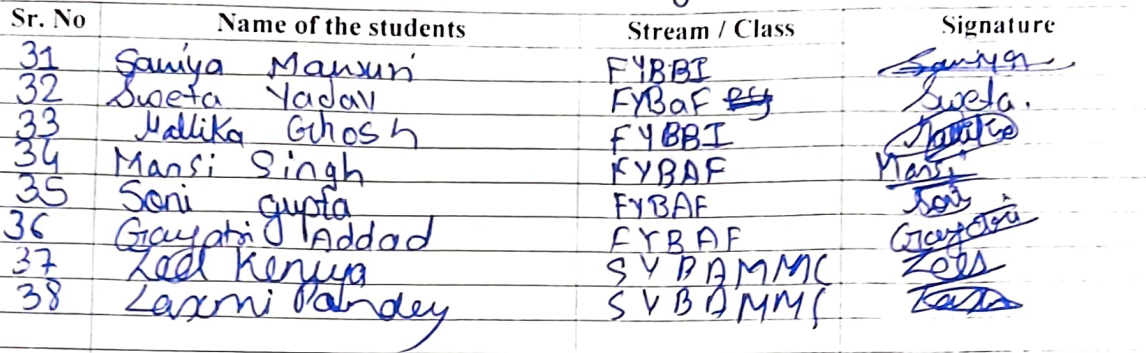 Sr. No Name of the students Stream / Class Signature
31 Saniya Mansuri FYBBI Saniya
32 Sweta Yadav FYBaF Sweta.
33 Mallika Ghosh FYBBI Mallika
34 Mansi Singh FYBAF Mansi
35 Soni gupta FYBAF Soni
36 Gayatri Addad FYBAF Gayatri
37 Keniya SYBAMMC
38 Laxmi Pandey SYBAMMC